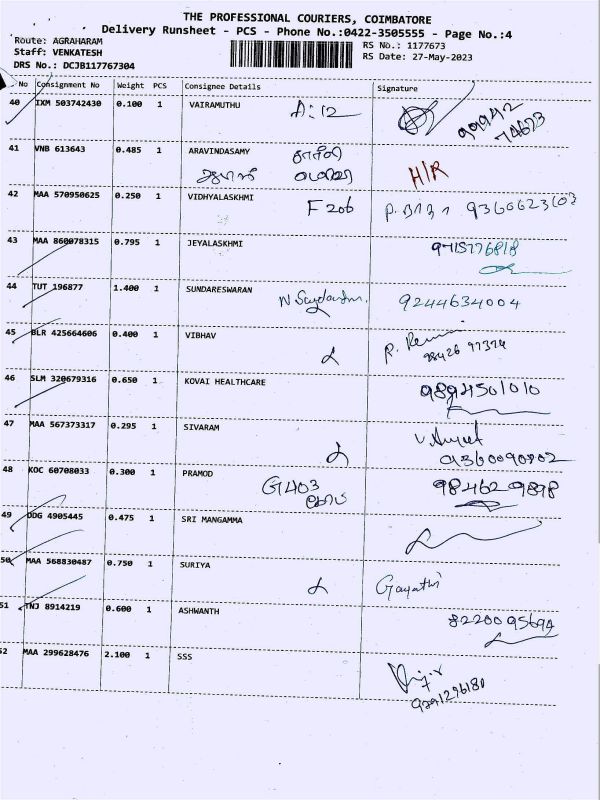 THE PROFESSIONAL COURIERS, COIMBATORE
Delivery Runsheet - PCS - Phone No.:0422-3505555 - Page No.:4
Route: AGRAHARAM
Staff: VENKATESH
DRS No.: DCJB117767304
RS No.: 1177673
RS Date: 27-May-2023
No Consignment No Weight PCS Consignee Details Signature
40 IXM 503742430 0.100 1 VAIRAMUTHU A:12
99942
74673
41 VNB 613643 0.485 1 ARAVINDASAMY
H/R
42 MAA 570950625 0.250 1 VIDHYALASKHMI F 206
43 MAA 860078315 0.795 1 JEYALASKHMI 9715776818
44 TUT 196877 1.400 1 SUNDARESWARAN 9244634004
45 BLR 425664606 0.400 1 VIBHAV
46 SLM 320679316 0.650 1 KOVAI HEALTHCARE 9894501010
47 MAA 567373317 0.295 1 SIVARAM
9360090802
48 KOC 60708033 0.300 1 PRAMOD G403 98462 9898
49 DDG 4905445 0.475 1 SRI MANGAMMA
50 MAA 568830487 0.750 1 SURIYA Gayathri
51 TNJ 8914219 0.600 1 ASHWANTH 8220095694
52 MAA 299628476 2.100 1 SSS
9791296180